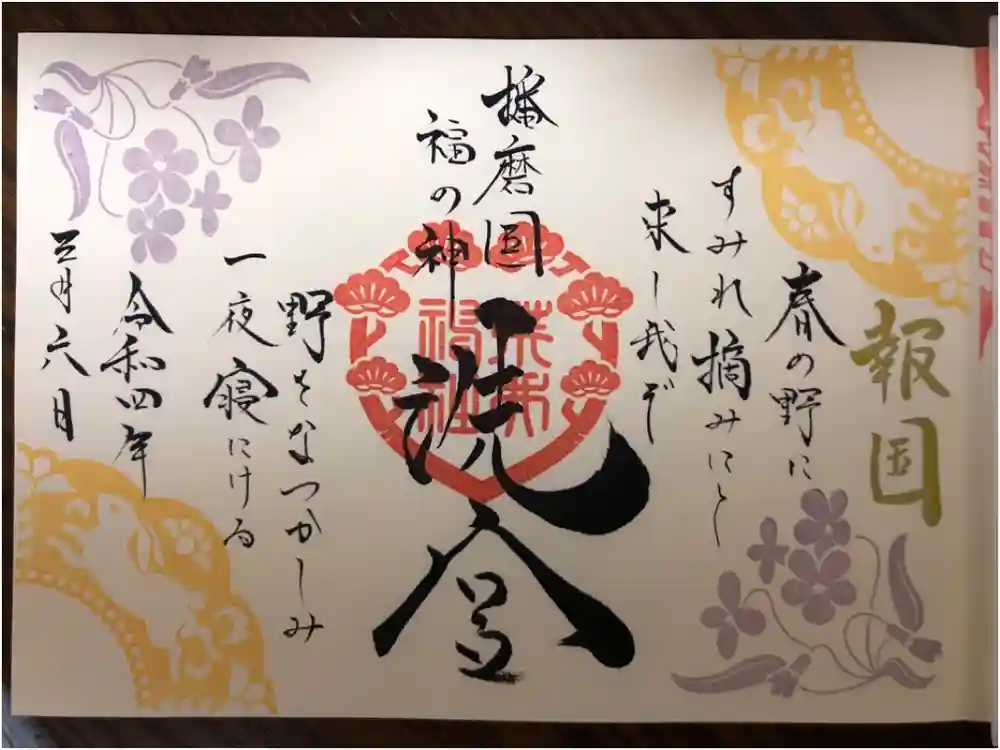 報国
春の野に
すみれ摘みにと
来し我ぞ
播磨国
福の神
野をなつかしみ
一夜寝にける
令和四年
三月六日